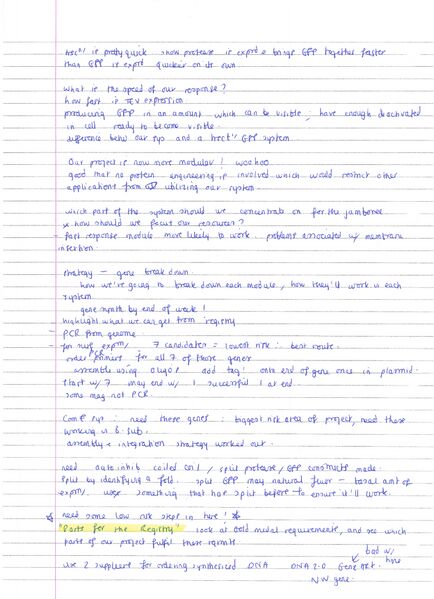 is pretty quick show protease is exprd & brings GFP together faster
than GFP is exprd quicker on its own.
What is the speed of our response?
how fast is TEV expression
producing GFP in an amount which can be visible; have enough deactivated
in cell ready to become visible.
difference betw our sys and a GFP system.
Our project is now more modular! woohoo
good that no protein engineering is involved which would restrict other
applications from utilising our system.
which part of the system should we concentrate on for the jamboree
& how should we focus our resources?
- fast response module more likely to work. problems associated w/ membrane
insertion.
strategy - gene break down.
how we're going to break down each module, how they'll work in each
system
gene by end of week!
highlight what we can get from registry
- PCR from genome.
- for surf exprn, 7 candidates = lowest risk : best route.
order PCR primers for all 7 of those genes
assemble using oligos. add tag! onto end of gene once in plasmid.
start w/ 7 may end w/ 1 successful 1 at end.
some may not PCR.
Comp sys : need these genes : biggest risk area of project, need these
working in B. sub.
assembly & integration strategy worked out.
need autoinhib coiled coil / split protease / GFP constructs made.
split by identifying a fold. split GFP may natural - basal amt of
exprn. use something that has split before to ensure it'll work.
need some low risk steps in here!
"Parts for the Registry" look at Gold medal requirements, and see which
parts of our project fulfil these
bad w/
use 2 suppliers for ordering synthesised DNA DNA 2.0 Gene Art here
NW gene.